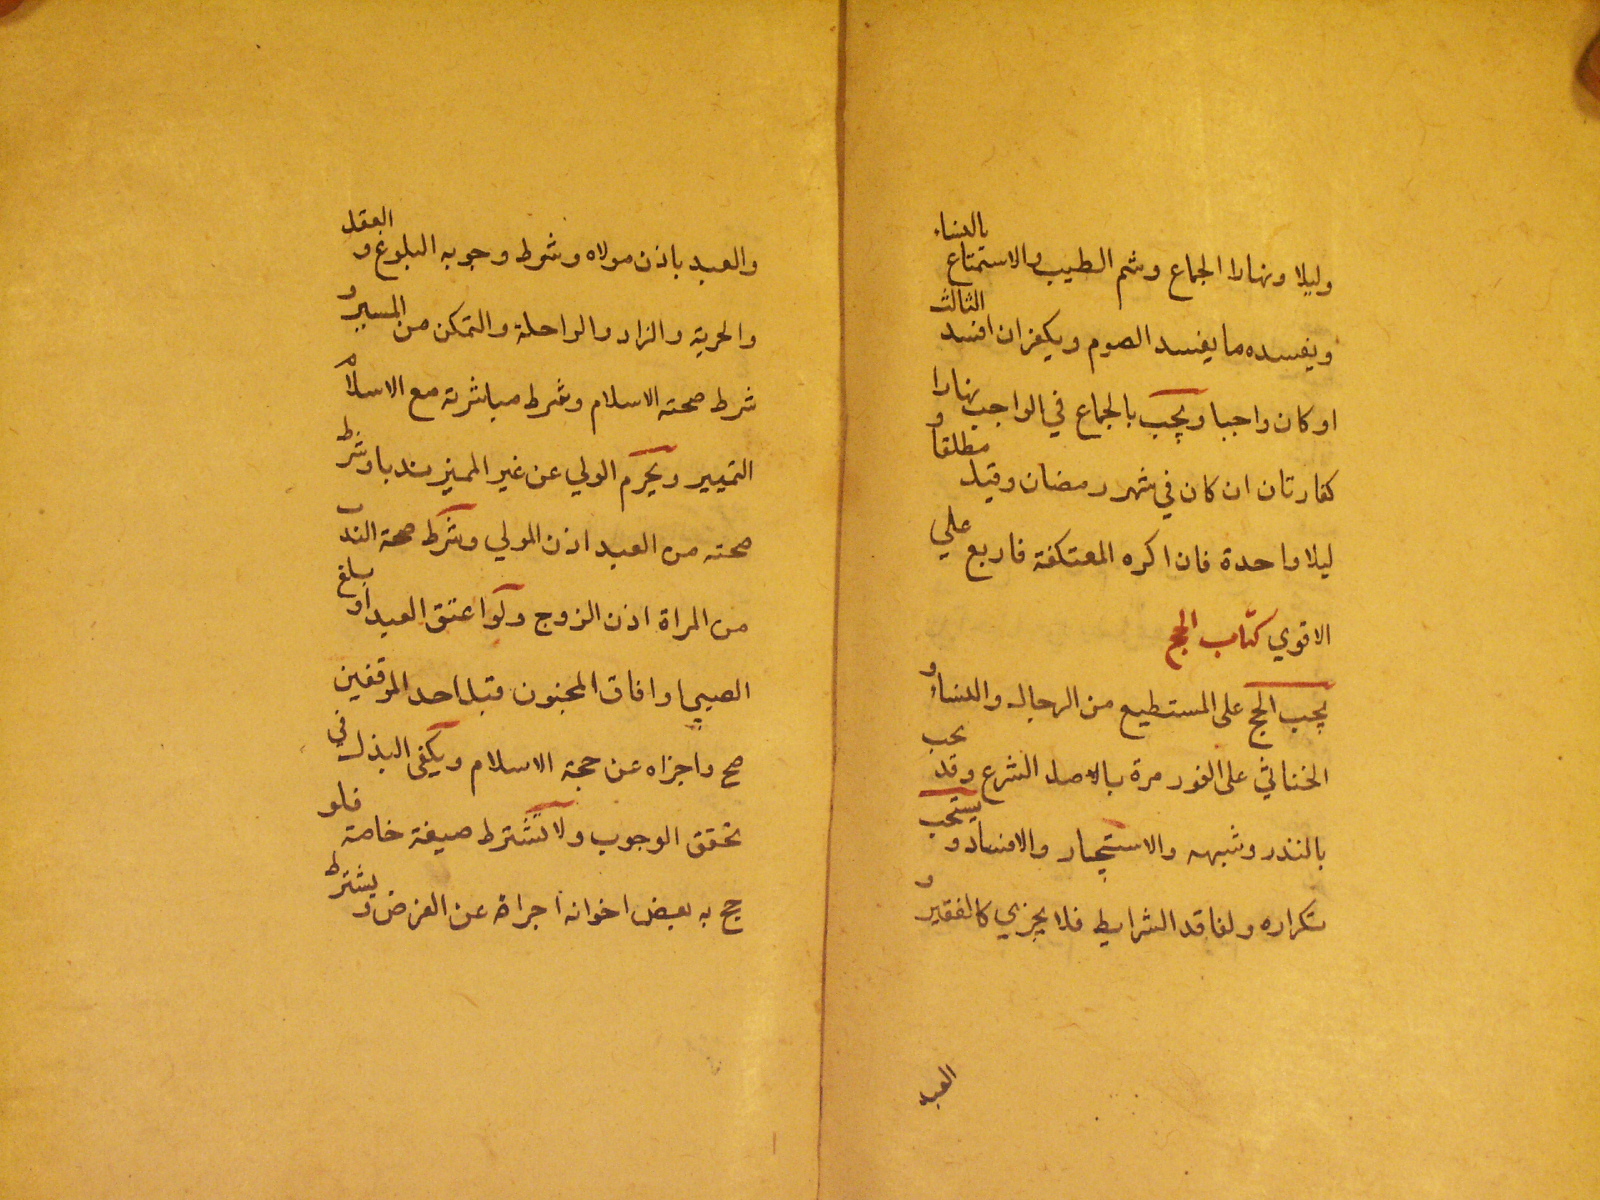 وليلا ونهارا الجماع وشم الطيب والاستمتاع بالنساء
ويفسده ما يفسد الصوم ويكفر ان افسد الثالث
او كان واجبا ويجب بالجماع في الواجب نهارا
كفارتان ان كان في شهر رمضان وقيل مطلقا و
ليلا واحدة فان اكره المعتكفة فاربع علي
الاقوي كتاب الحج
يجب الحج على المستطيع من الرجال والنساء و
الخناثي على الفور مرة بالاصل الشرع وقد يجب
بالنذر وشبهه والاستيجار والافساد و يستحب
تكراره ولفاقد الشرايط فلا يجزي كالفقير و
العبد
والعبد باذن مولاه وشرط وجوبه البلوغ و العقل
والحرية والزاد والراحلة والتمكن من المسير و
شرط صحته الاسلام وشرط مباشرته مع الاسلام
التمييز ويحرم الولي عن غير المميز ندبا وشرط
صحته من العبد اذن المولي وشرط صحة الندب
من المراة اذن الزوج ولو اعتق العبد او بلغ
الصبي او افاق المجنون قبل احد الموقفين
صح واجزاه عن حجة الاسلام ويكفى البذل في
تحقق الوجوب ولا تشترط صيغة خاصة فلو
حج به بعض اخوانه اجزاه عن الفرض و يشترط